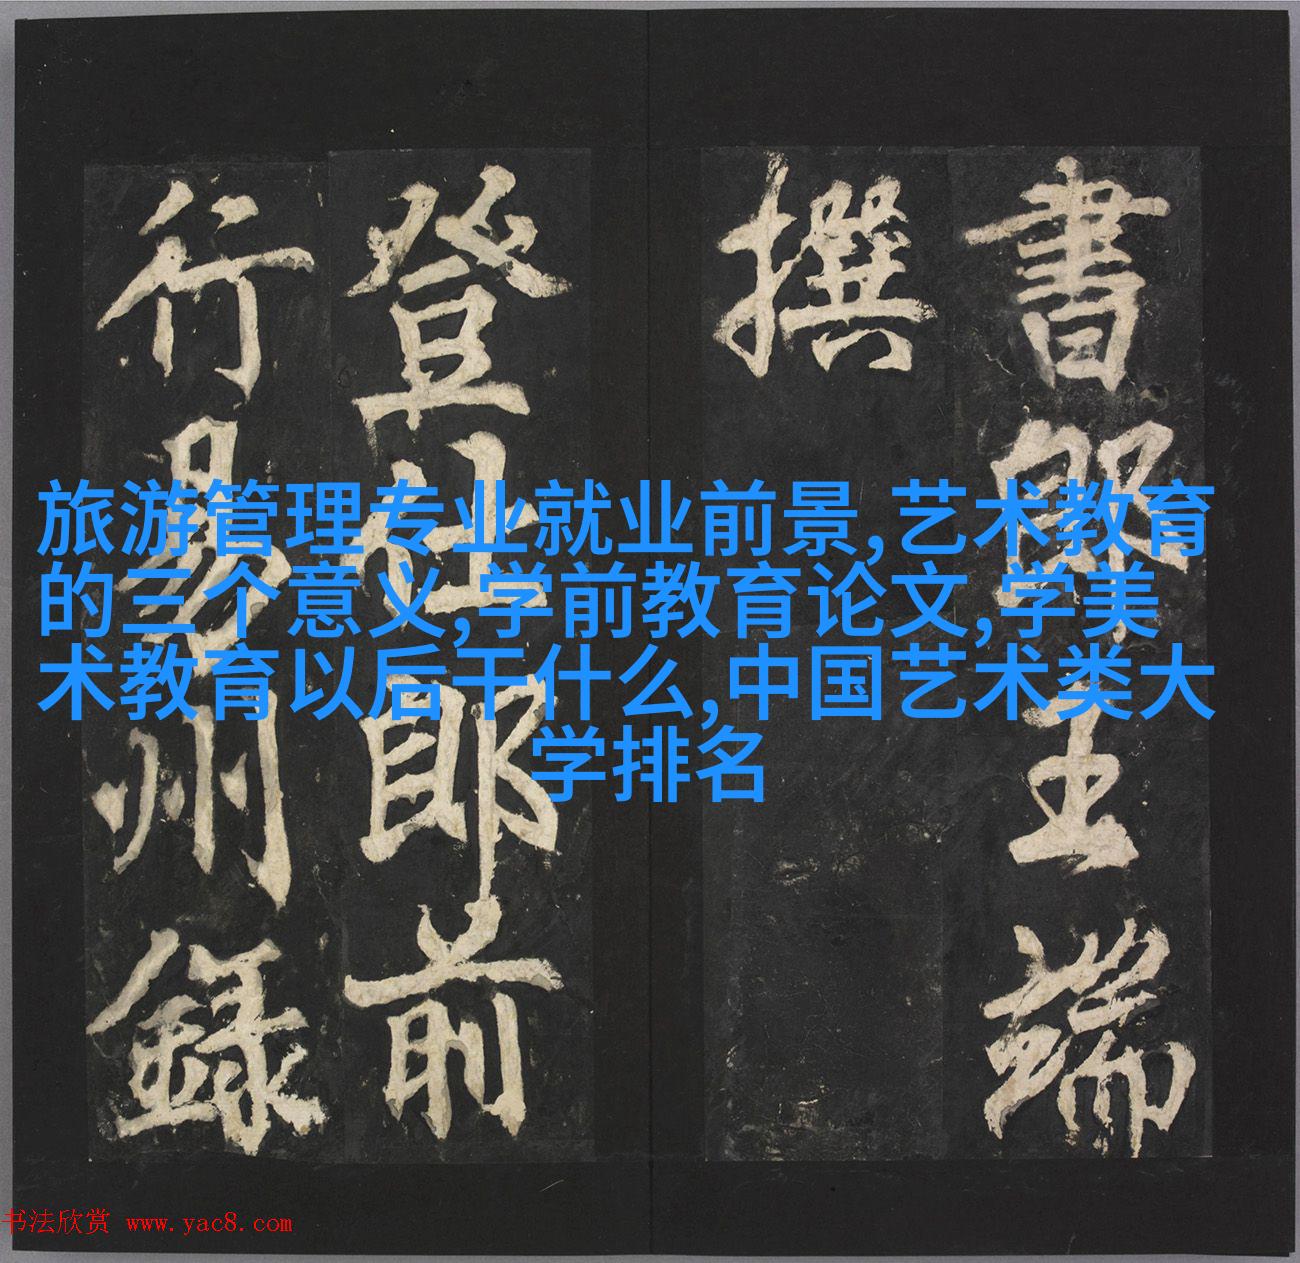 書郎王端
撰
登仕郎前
行易州録
旅游管理专业就业前景,艺术教育
的三个意义,学前教育论文,学美
术教育以后干什么,中国艺术类大
学排名
书法欣赏 www.yac8.com